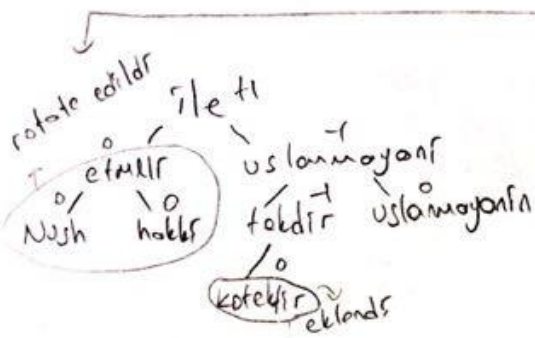 rotate edildi
ile +1
0
etmeli
-1
uslanmayanı
0
Nush
0
hakkı
-1
tekdir
0
uslanmayanın
0
kötektir
eklendi